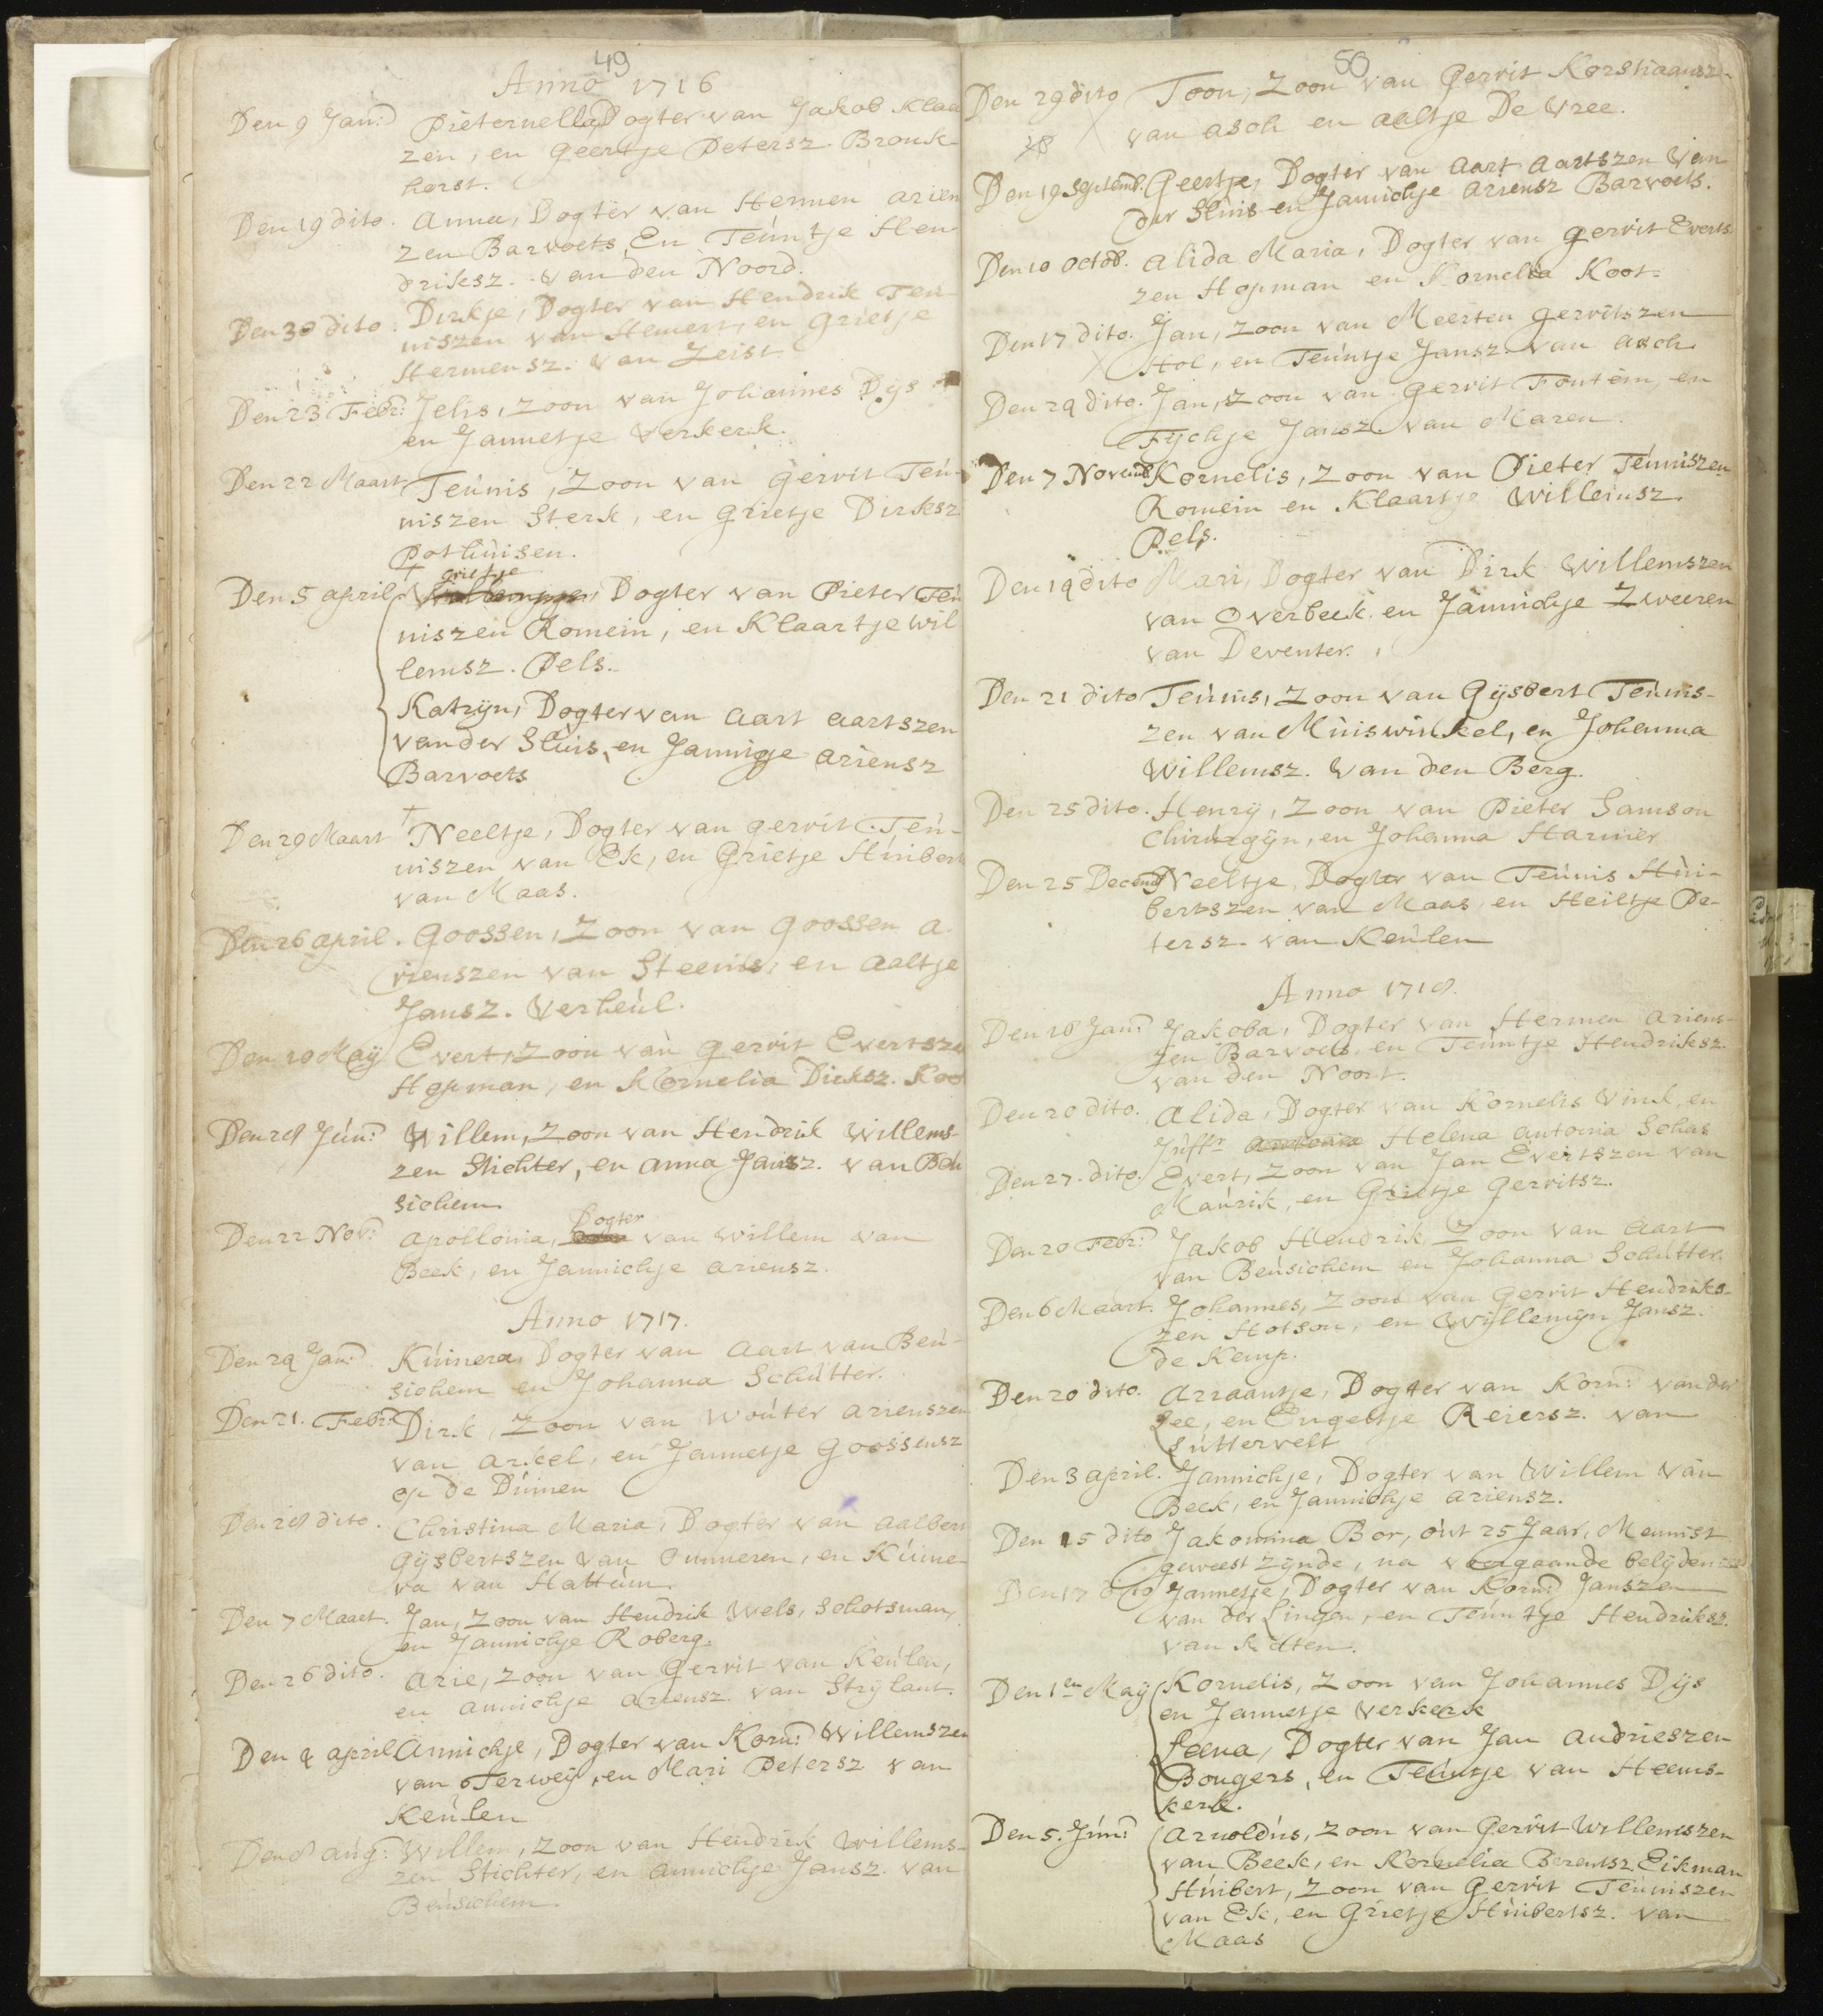 49
Anno 1716
Den 9 Jan: Pieternella Dogter van Jakob Klaa
zen, en Geertje Petersz. Bronk
horst.
Den 19 dito. Anna, Dogter van Hermen Arien
zen Barvoets En Teuntje Hen
driksz. van den Noord.
Den 30 dito. Dirkje, Dogter van Hendrik Teu
niszen van Hemert, en Grietje
Hermensz. van Zeist.
Den 23 Febr: Jelis, Zoon van Johannes Dijs
en Jannetje Verkerk.
Den 22 Maart Teunis, Zoon van Gerrit Teu-
niszen Sterk, en Grietje Dirksz
Pothuisen.
grietje
Den 5 april Dogter van Pieter Teu
niszen Romein, en Klaartje Wil
lemsz. Pels.
Katryn, Dogter van Aart Aartszen
van der Sluis, en Jannigje Ariensz
Barvoets
Den 29 Maart Neeltje, Dogter van Gerrit Teu-
niszen van Ek, en Grietje Huibert
van Maas.
Den 26 april. Goossen, Zoon van Goossen A-
rienszen van Steenis, en Aaltje
Jansz. Verheul.
Den 10 May Evert, Zoon van Gerrit Evertsze
Hopman, en Kornelia Dirksz. Koo
Den 28 Jun: Willem, Zoon van Hendrik Willems-
zen Stichter, en Anna Jansz. van Beu
sichem
Dogter
Den 22 Nov: Apollonia, van Willem van
Beek, en Jannichje Ariensz.
Anno 1717.
Den 24 Jan: Kunnera, Dogter van Aart van Beu-
sichem en Johanna Schutter.
Den 21. Febr: Dirk, Zoon van Wouter Arienszen
van Arkel, en Jannetje Goossensz
op de Dumen
Den 28 dito. Christina Maria, Dogter van Aalbert
Gysbertszen van Ommeren, en Kunne-
ra van Hattum.
Den 7 Maart. Jan, Zoon van Hendrik Wels, Schotsman,
en Jannichje Roberg.
Den 26 dito. Arie, Zoon van Gerrit van Keulen,
en Annichje Ariensz. van Strylant.
Den 4 april Annichje, Dogter van Korn: Willemszen
van Terwey, en Mari Petersz van
Keulen
Den 8 Aug: Willem, Zoon van Hendrik Willems-
zen Stichter, en Annichje Jansz. van
Beusichem.
50
Den 29 dito Toon, Zoon van Gerrit Korstiaansz-
van Asch en Aaltje De Vree.
Den 19 Septemb. Geertje, Dogter van Aart Aartszen van
der Sluis en Jannichje Ariensz Barvoets.
Den 10 Octob. Alida Maria, Dogter van Gerrit Everts
zen Hopman en Kornelia Koot.
Den 17 dito. Jan, Zoon van Meerten Gerritszen
Hol, en Teuntje Jansz. van Asch
Den 24 dito. Jan, Zoon van Gerrit Fontein, en
Fychje Jansz. van Maren.
Den 7 Novemb Kornelis, Zoon van Pieter Teuniszen
Romein en Klaartje Willemsz.
Pels.
Den 14 dito Mari, Dogter van Dirk Willemszen
van Overbeek. en Jannichje Zweeren
van Deventer.
Den 21 dito Teunis, Zoon van Gysbert Teunis-
zen van Muiswinkel, en Johanna
Willemsz. van den Berg.
Den 25 dito. Henry, Zoon van Pieter Samson
Chirurgyn, en Johanna Harmer
Den 25 Decemb Neeltje, Dogter van Teunis Hui-
bertszen van Maas, en Heiltje Pe-
tersz. van Keulen
Anno 1718.
Den 16 Jan: Jakoba, Dogter van Hermen Ariens-
zen Barvoets, en Teuntje Hendriksz.
van den Noort.
Den 20 dito. Alida, Dogter van Kornelis Vink, en
Juffr Antonia Helena Antonia Schas
Den 27. dito. Evert, Zoon van Jan Evertszen van
Maurik, en Grietje Gerritsz.
Den 20 Febr: Jakob Hendrik, Zoon van Aart
van Beusichem en Johanna Schutter.
Den 6 Maart. Johannes, Zoon van Gerrit Hendriks-
zen Hotson, en Willemyn Jansz.
de Kemp.
Den 20 dito. Arraantje, Dogter van Korn: van der
Lee, en Engeltje Reiersz. van
Suttervelt
Den 3 april. Jannichje, Dogter van Willem van
Beek, en Jannichje Ariensz.
Den 15 dito Jakomina Bor, out 25 Jaar, Mennist
geweest zynde, na voorgaande belydenisse
Den 17 dito Jannetje, Dogter van Korn: Janszen
van der Lingen, en Teuntje Hendriksz.
van Ketten.
Den 1en May Kornelis, Zoon van Johannes Dijs
en Jannetje Verkerk
Leena, Dogter van Jan Andrieszen
Bongers, en Teuntje van Heems-
kerk.
Den 5. Jun: Arnoldus, Zoon van Gerrit Willemszen
van Beek, en Kornelia Berentsz. Eikman
Huibert, Zoon van Gerrit Teuniszen
van Ek, en Grietje Huibertsz. van
Maas